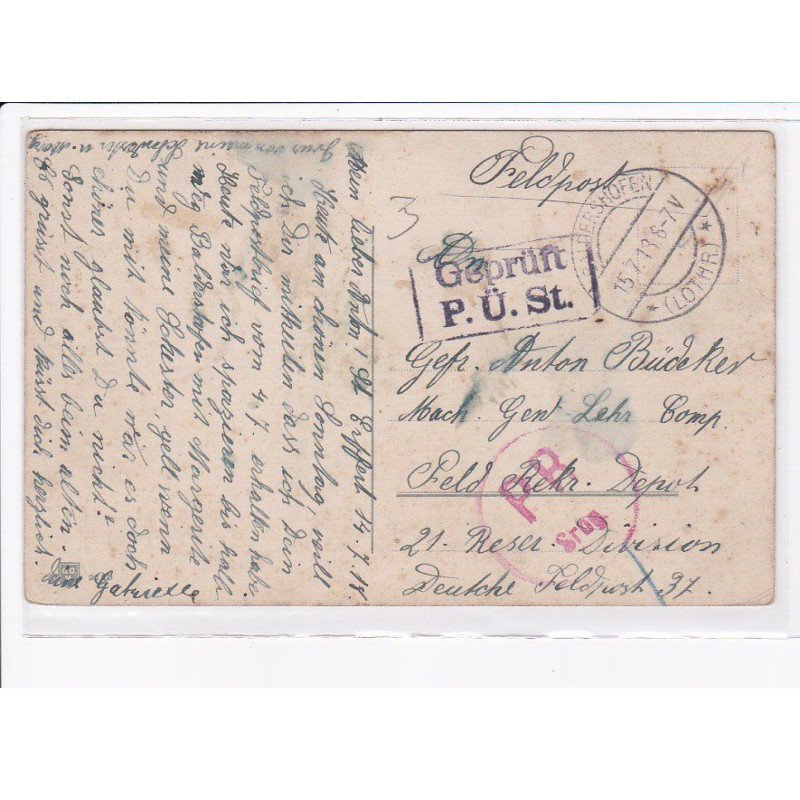 Feldpost
3
An
Geprüft
P. Ü. St.
(LOTHR)
15.7.18 6-7V
Gefr. Anton Büdeker
Mach. Gew. Lehr Comp.
Feld Rekr. Depot
21. Reser. Division
Deutche Feldpost 37.
P.R.
Srbg
Mein Lieber Anton! 14.7.18.
Heute am schönen Sonntag, will
ich Dir mitteilen dass ich Dein
Feldpostbrief vom 4.7. erhalten habe.
Heute war ich spazieren bis halb
weg mit Margerite
und meine gelt wenn
Du mit könnte wär es doch
schöner glaubst Du nicht?
Sonst noch alles beim alten.
Es grüsst und küsst dich herzlich.
Deine Gabrielle
Grus von meine Schwester u.